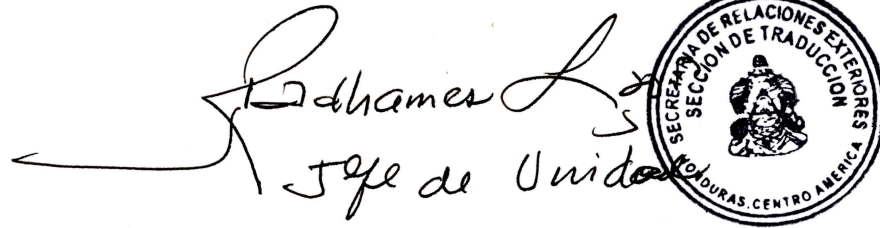 Radhames
Jefe de Unidad
SECRETARIA DE RELACIONES EXTERIORES
SECCION DE TRADUCCION
HONDURAS. CENTRO AMERICA